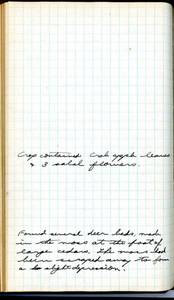 Crop contained Crab apple leaves
& 3 salal flowers.
Found several deer beds, made
in the moss at the foot of
large cedars. The moss had
been scraped away to form
a slight depression.